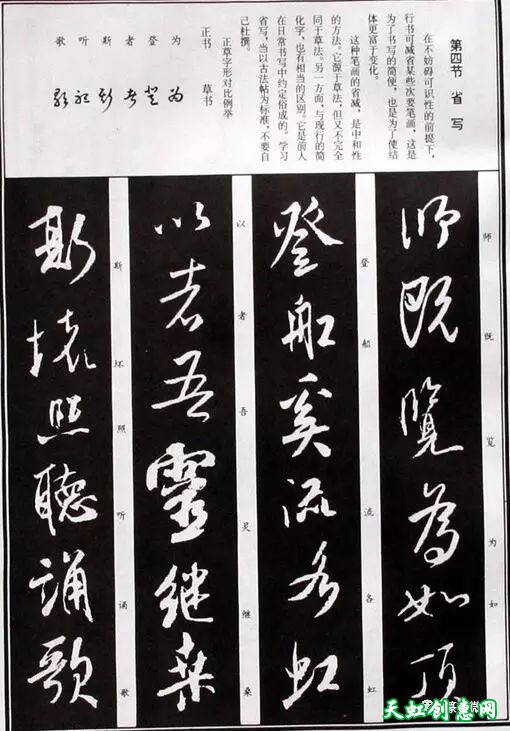 第四节 省写
在不妨碍可识性的前提下,
行书可减省某些次要笔画,这是
为了书写的简便,也是为了使结
体更富于变化。
这种笔画的省减,是中和性
的方法。它源于草法,但又不完全
同于草法。另一方面,与现行的简
化字,也有相当的区别。它是前人
在日常书写中约定俗成的。学习
省写,当以古法帖为标准,不要自
己杜撰。
正草字形对比例举
正书 草书
为 为
登 登
者 者
斯 斯
听 听
歌 歌
师既览为如
師既覽為如頂
登船流各虹
登船奚流各虹
以者吾灵继桑
以者吾靈継桑
斯坏照听诵歌
斯壊照聽誦歌
天虹创意网